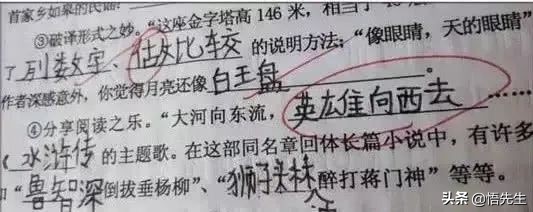 首家乡如果的民谣:
③破译形式之妙。“这座金字塔高146米,相当于4
了列数字、作比较的说明方法;“像眼睛,天的眼睛”
作者深感意外,你觉得月亮还像白玉盘。
④分享阅读之乐。“大河向东流,英雄向西去……
《水浒传的主题歌。在这部同名章回体长篇小说中,有许多
如“鲁智深倒拔垂杨柳”、“狮子头林醉打蒋门神”等等。
头条 @悟先生